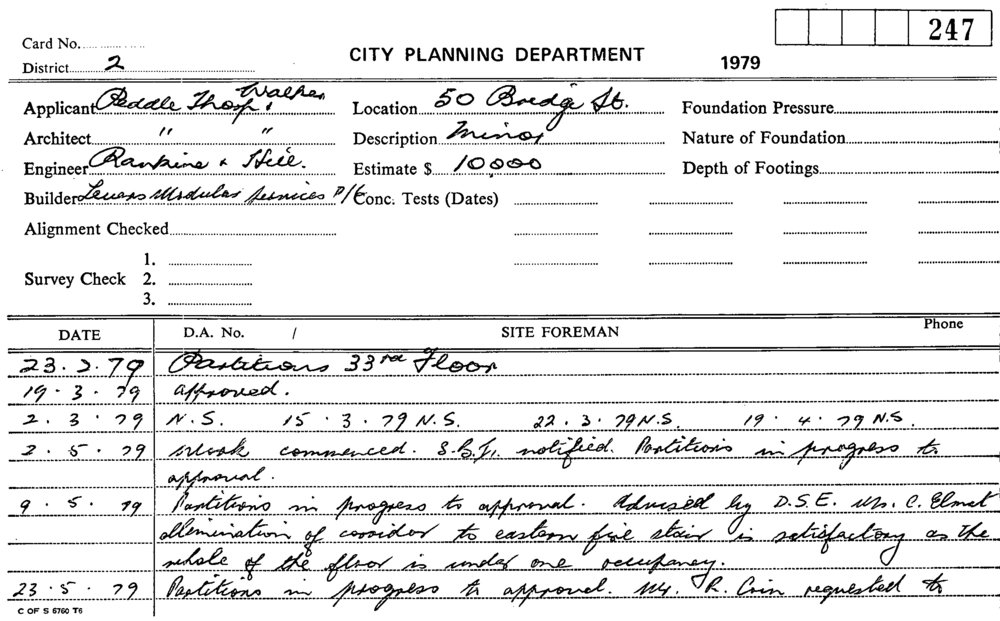 247
Card No.
District 2
CITY PLANNING DEPARTMENT
1979
Applicant Peddle Thorp & Walker
Location 50 Bridge St.
Foundation Pressure
Architect " "
Description Minor
Nature of Foundation
Engineer Rankine & Hill.
Estimate $ 10,000
Depth of Footings
Builder Modular Services P/L
Conc. Tests (Dates)
Alignment Checked
1.
Survey Check 2.
3.
DATE D.A. No. / SITE FOREMAN Phone
23.2.79 Partitions 33rd Floor
19.3.79 approved.
2.3.79 N.S. 15.3.79 N.S. 22.3.79 N.S. 19.4.79 N.S.
2.5.79 work commenced. notified. Partitions in progress to
approval.
9.5.79 Partitions in progress to approval. Advised by D.S.E. Mr. C. Elmat
elimination of corridor to eastern fire stair is satisfactory as the
whole of the floor is under one occupancy.
23.5.79 Partitions in progress to approval. Mr. R. requested to
C OF S 6760 T6